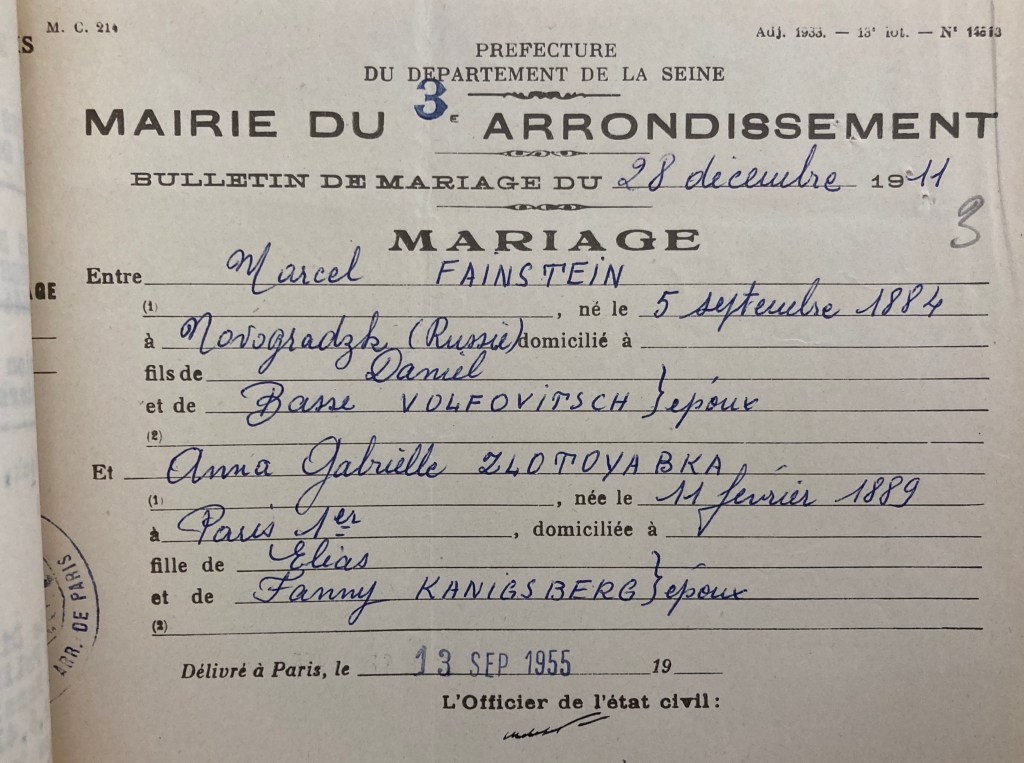 M. C. 214
Adj. 1933. — 13e lot. — N°
PREFECTURE
DU DEPARTEMENT DE LA SEINE
MAIRIE DU 3e ARRONDISSEMENT
BULLETIN DE MARIAGE DU 28 décembre 1911
3
MARIAGE
Entre Marcel FAINSTEIN
(1) , né le 5 septembre 1884
à Novogradzk (Russie) domicilié à
fils de Daniel
et de Basse VOLFOVITSCH } époux
(2)
Et Anna Gabrielle ZLOTOYABKA
(1) , née le 11 février 1889
à Paris 1er , domiciliée à
fille de Elias
et de Fanny KANIGSBERG } époux
(2)
ARR. DE PARIS
Délivré à Paris, le 13 SEP 1955 19
L'Officier de l'état civil :